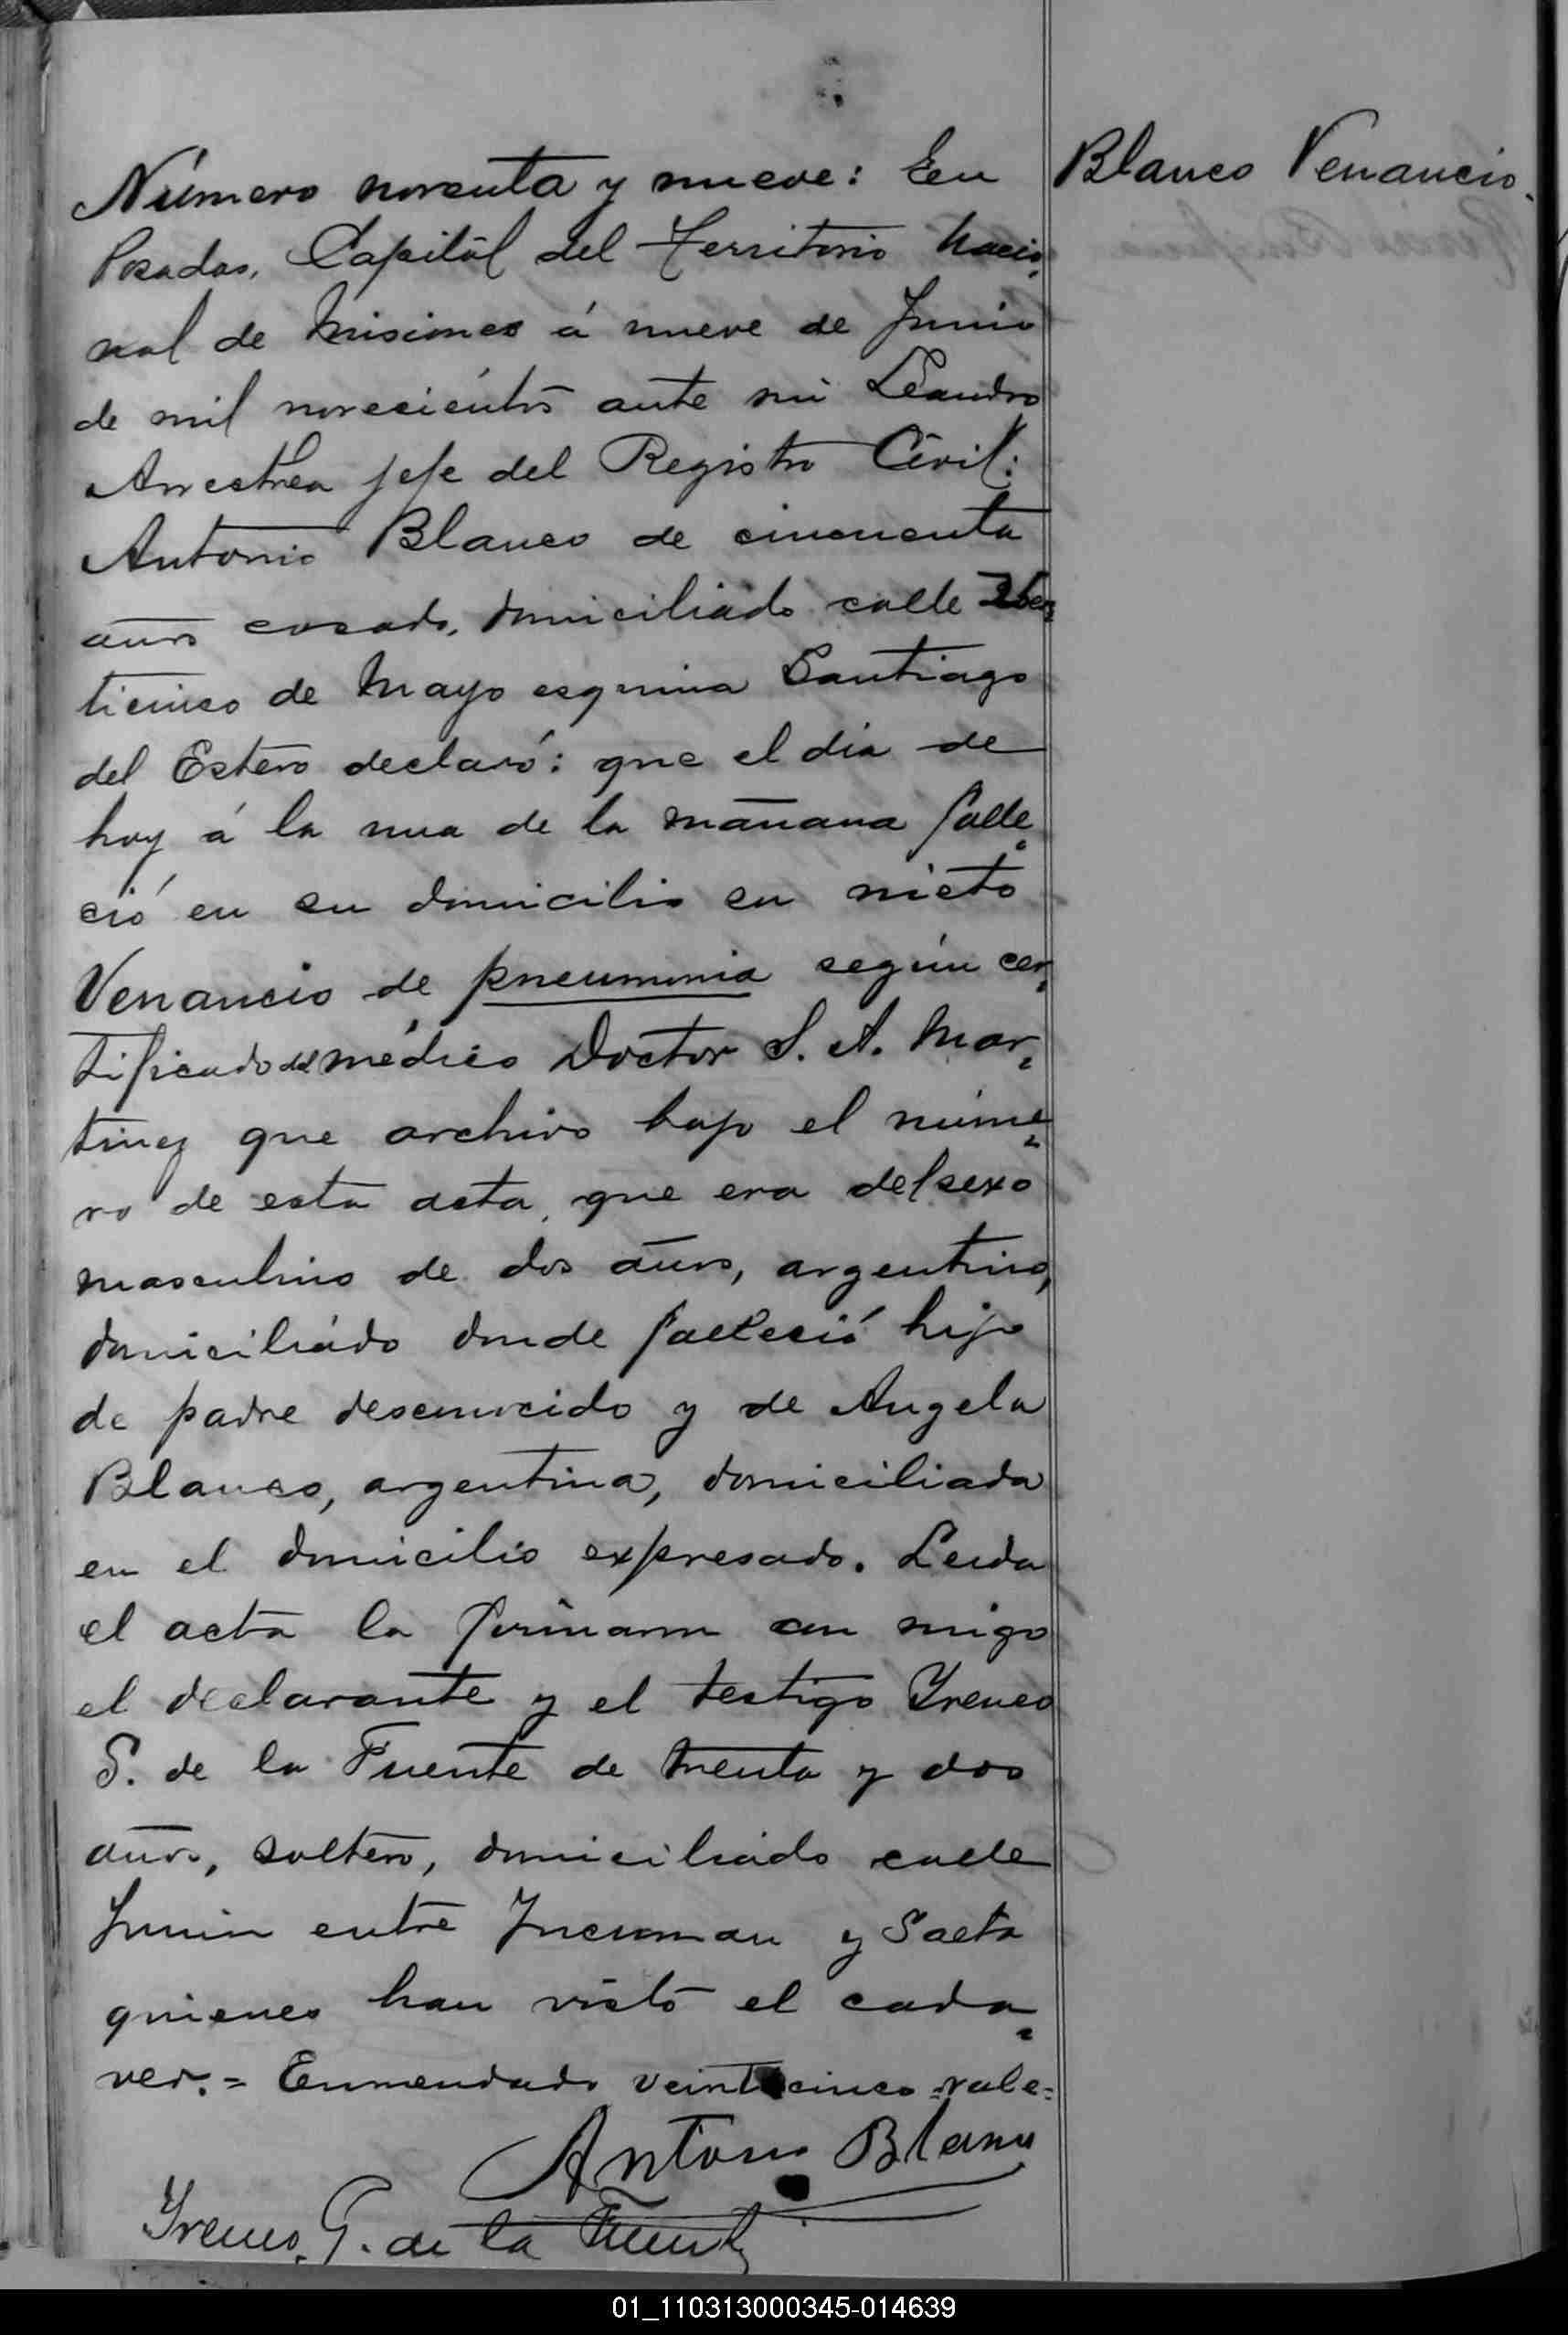 Número noventa y nueve: En
Posadas, Capital del Territorio Nacio
nal de Misiones á nueve de Junio
de mil novecientos ante mi Leandro
Arrechea jefe del Registro Civil:
Antonio Blanco de cincuenta
años casado, domiciliado calle
ticinco de Mayo esquina Santiago
del Estero declaró: que el dia de
hoy á la una de la mañana falle
ció en su domicilio su nieto
Venancio de pneumonia según cer
tificado del médico Doctor S. A. Mar
tinez que archivo bajo el núme
ro de esta acta, que era del sexo
masculino de dos años, argentino,
domiciliado donde falleció hijo
de padre desconocido y de Angela
Blanco, argentina, domiciliada
en el domicilio expresado. Leida
el acta la firmaron con migo
el declarante y el testigo Yreneo
G. de la Fuente de treinta y dos
años, soltero, domiciliado calle
Junin entre Tucuman y Salta
quienes han visto el cada
ver. = Enmendado veinticinco =vale=
Antonio Blanco
Yreneo G. de la Fuente
Blanco Venancio.
01_110313000345-014639